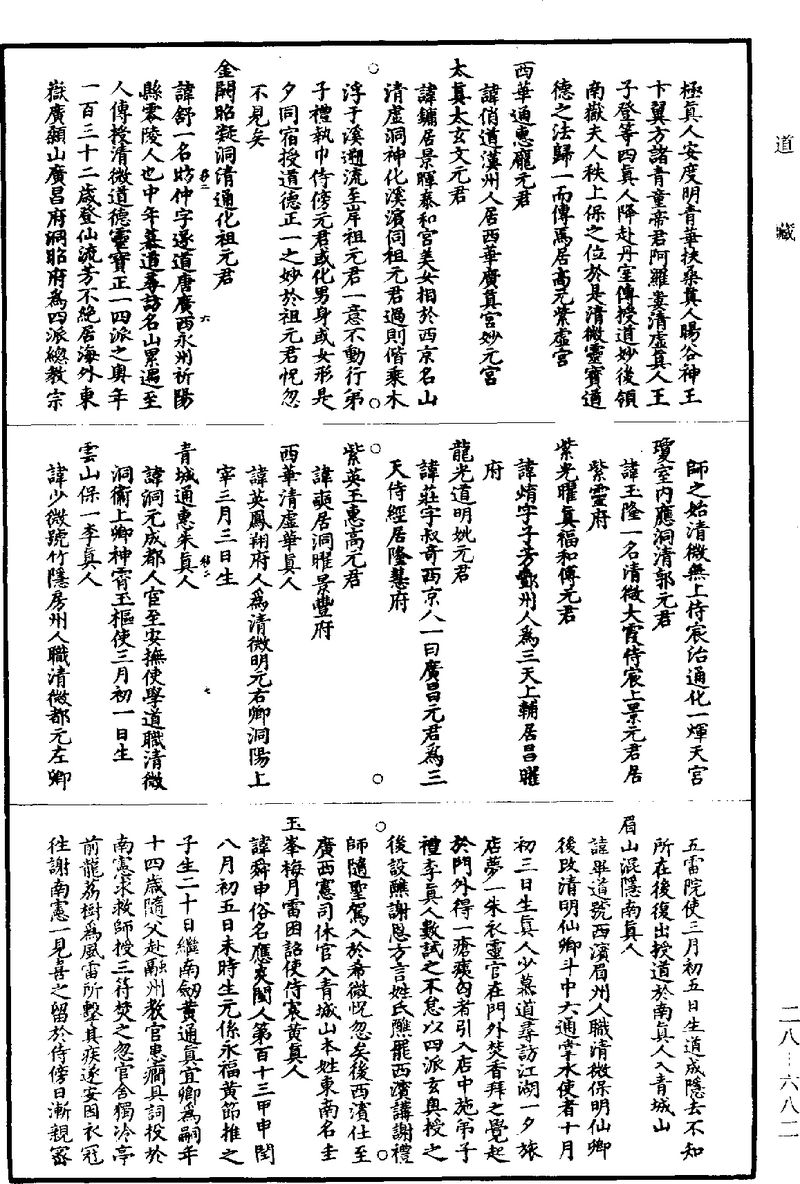 道藏
極真人安度明青華扶桑真人暘谷神王
卞翼方諸青童帝君阿羅婁清虛真人王
子登等四真人降赴丹室傳授道妙後領
南嶽夫人秩上保之位於是清微靈寶道
德之法歸一而傳焉居高元紫虛宮
西華通惠龐元君
諱俏道漢州人居西華廣真宮妙元宮
太真太玄文元君
諱鏞居景暉泰和宮美女相於西京名山
清虛洞神化溪濱伺祖元君過則偕乘木
浮于溪遡流至岸祖元君一意不動行弟
子禮執巾侍傍元君或化男身或女形是
夕同宿授道德正一之妙於祖元君恍忽
不見矣
金闕昭凝洞清通化祖元君
諱舒一名昉仲字遂道唐廣西永州祈陽
縣零陵人也中年慕道尋訪名山累遇至
人傳授清微道德靈寶正一四派之奧年
一百三十二歲登仙流芳不絕居海外東
嶽廣顛山廣昌府洞昭府為四派總教宗
師之始清微無上侍宸治通化一煇天宮
瓊室內應洞清郭元君
諱玉隆一名清微大霞侍宸上景元君居
紫靈府
紫光曜真福和傅元君
諱焴字子芳鄭州人為三天上輔居昌曜
府
龍光道明姚元君
諱莊字叔奇西京人一曰廣昌元君為三
天侍經居隆慈府
紫英玉惠高元君
諱奭居洞曜景豐府
西華清虛華真人
諱英鳳翔府人為清微明元右卿洞陽上
宰三月三日生
青城通惠朱真人
諱洞元成都人官至安撫使學道職清微
洞衞上卿神霄玉樞使三月初一日生
雲山保一李真人
諱少微號竹隱房州人職清微都元左卿
五雷院使三月初五日生道成隱去不知
所在後復出授道於南真人入青城山
眉山混隱南真人
諱畢道號西濱眉州人職清微保明仙卿
後改清明仙卿斗中六通掌水使者十月
初三日生真人少慕道尋訪江湖一夕旅
店夢一朱衣靈官在門外焚香拜之覺起
於門外得一瘡痍丐者引入店中施弟子
禮李真人數試之不怠以四派玄奧授之
後設醮謝恩方言姓氏醮罷西濱講謝禮
師隨聖駕入於希微恍忽矣後西濱仕至
廣西憲司休官入青城山本姓東南名圭
玉峯梅月雷囦誥使侍宸黃真人
諱舜申俗名應炎閩人第百十三甲申閏
八月初五日未時生元係永福黃節推之
子生二十日繼南劒黃通真宜卿為嗣年
十四歲隨父赴融州教官患癎具詞投於
南憲求救師授三符焚之忽官舍獨冷亭
前龍荔樹為風雷所擊其疾遂安因衣冠
往謝南憲一見喜之留於侍傍日漸親密
二八－六八二